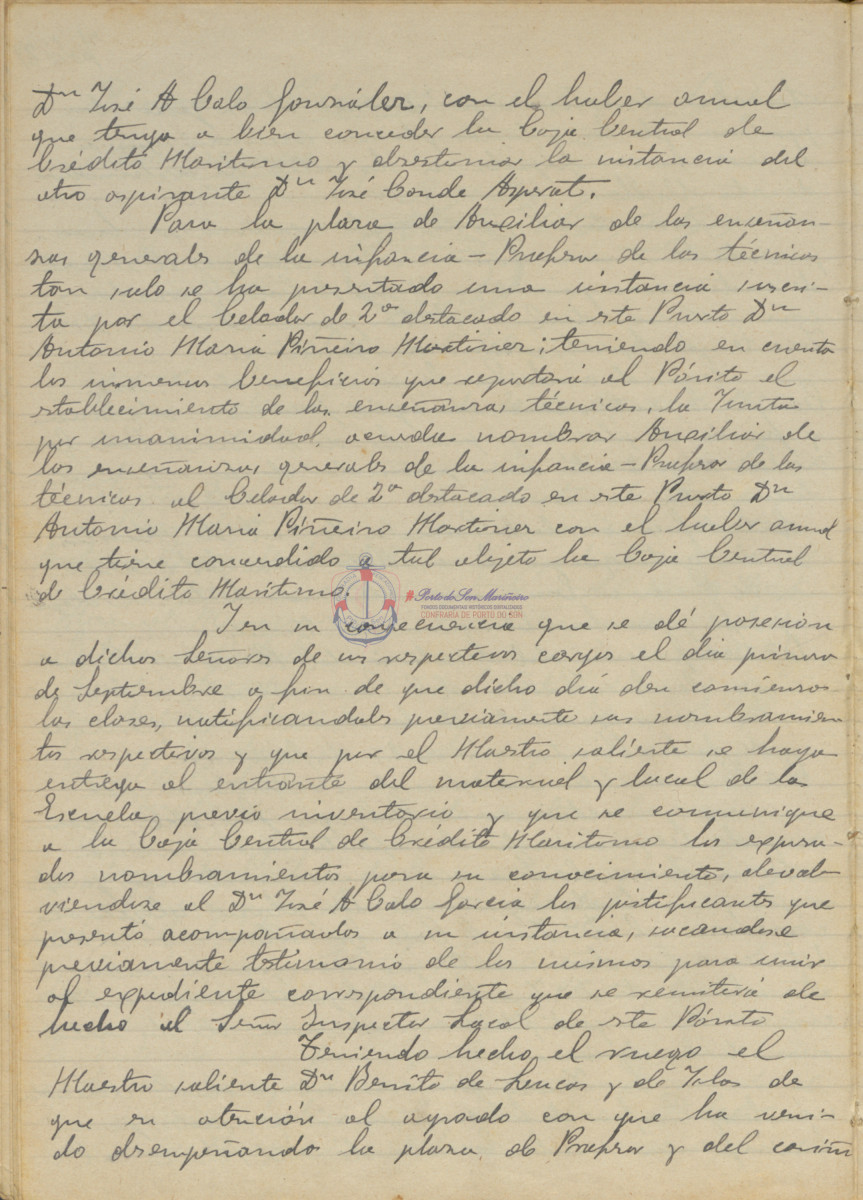 Dn José A Calo González, con el haber anual
que tenga a bien conceder la Caja Central de
Crédito Maritimo y desestimar la instancia del
otro aspirante Dn José Conde
Para la plaza de Auxiliar de las enseñan-
zas generales de la infancia - Profesor de las técnicas
tan solo se ha presentado una instancia suscri-
ta por el Celador de 2ª destacado en este Puerto Dn
Antonio Maria Piñeiro Martinez; teniendo en cuenta
los inmensos beneficios que reportará al Pósito el
establecimiento de las enseñanzas técnicas, la Junta
por unanimidad, acuerda nombrar Auxiliar de
las enseñanzas generales de la infancia - Profesor de las
técnicas al Celador de 2ª destacado en este Puerto Dn
Antonio Maria Piñeiro Martinez con el haber anual
que tiene concedido a tal objeto la Caja Central
de Crédito Maritimo.
#PortodoSonMariñeiro
FONDOS DOCUMENTAIS HISTÓRICOS DIXITALIZADOS
CONFRARÍA DE PORTO DO SON
Y en su consecuencia que se dé posesión
a dichos Señores de sus respectivos cargos el dia primero
de Septiembre a fin de que dicho dia den comienzo
las clases, notificandoles previamente sus nombramien
tos respectivos y que por el Maestro saliente se haga
entrega al entrante del material y local de la
Escuela previo inventario y que se comunique
a la Caja Central de Crédito Maritimo los expresa-
dos nombramientos para su conocimiento, devol-
viendose al Dn José A Calo Garcia los justificantes que
presentó acompañados a su instancia, sacandose
previamente testimonio de los mismos para unir
al expediente correspondiente que se remitirá de
hecho al Señor Inspector Local de este Pósito
Teniendo hecho el ruego el
Maestro saliente Dn Benito de Lucas y de Islas de
que en atención al agrado con que ha veni-
do desempeñando la plaza de Profesor y del cariñ